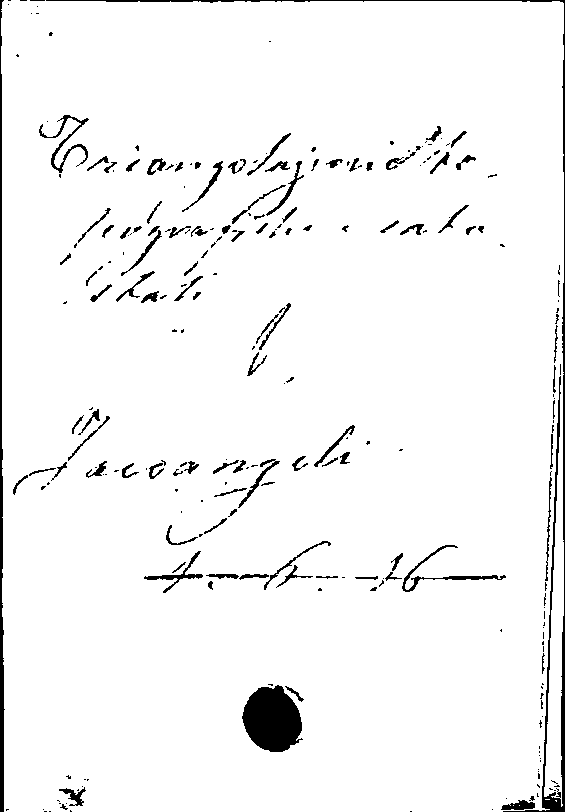 Triangolazioni
topografiche e cata
stali
Jacoangeli
1. 6. 16